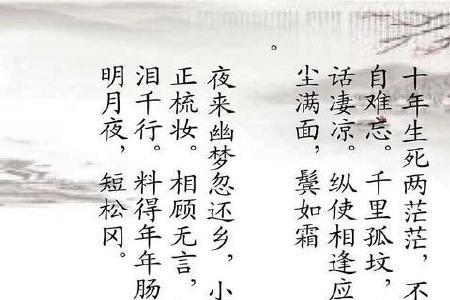 十年生死两茫茫，不
自难忘。千里孤坟，
话凄凉。纵使相逢应
尘满面，鬓如霜
。
夜来幽梦忽还乡，小
正梳妆。相顾无言，
泪千行。料得年年肠
明月夜，短松冈。